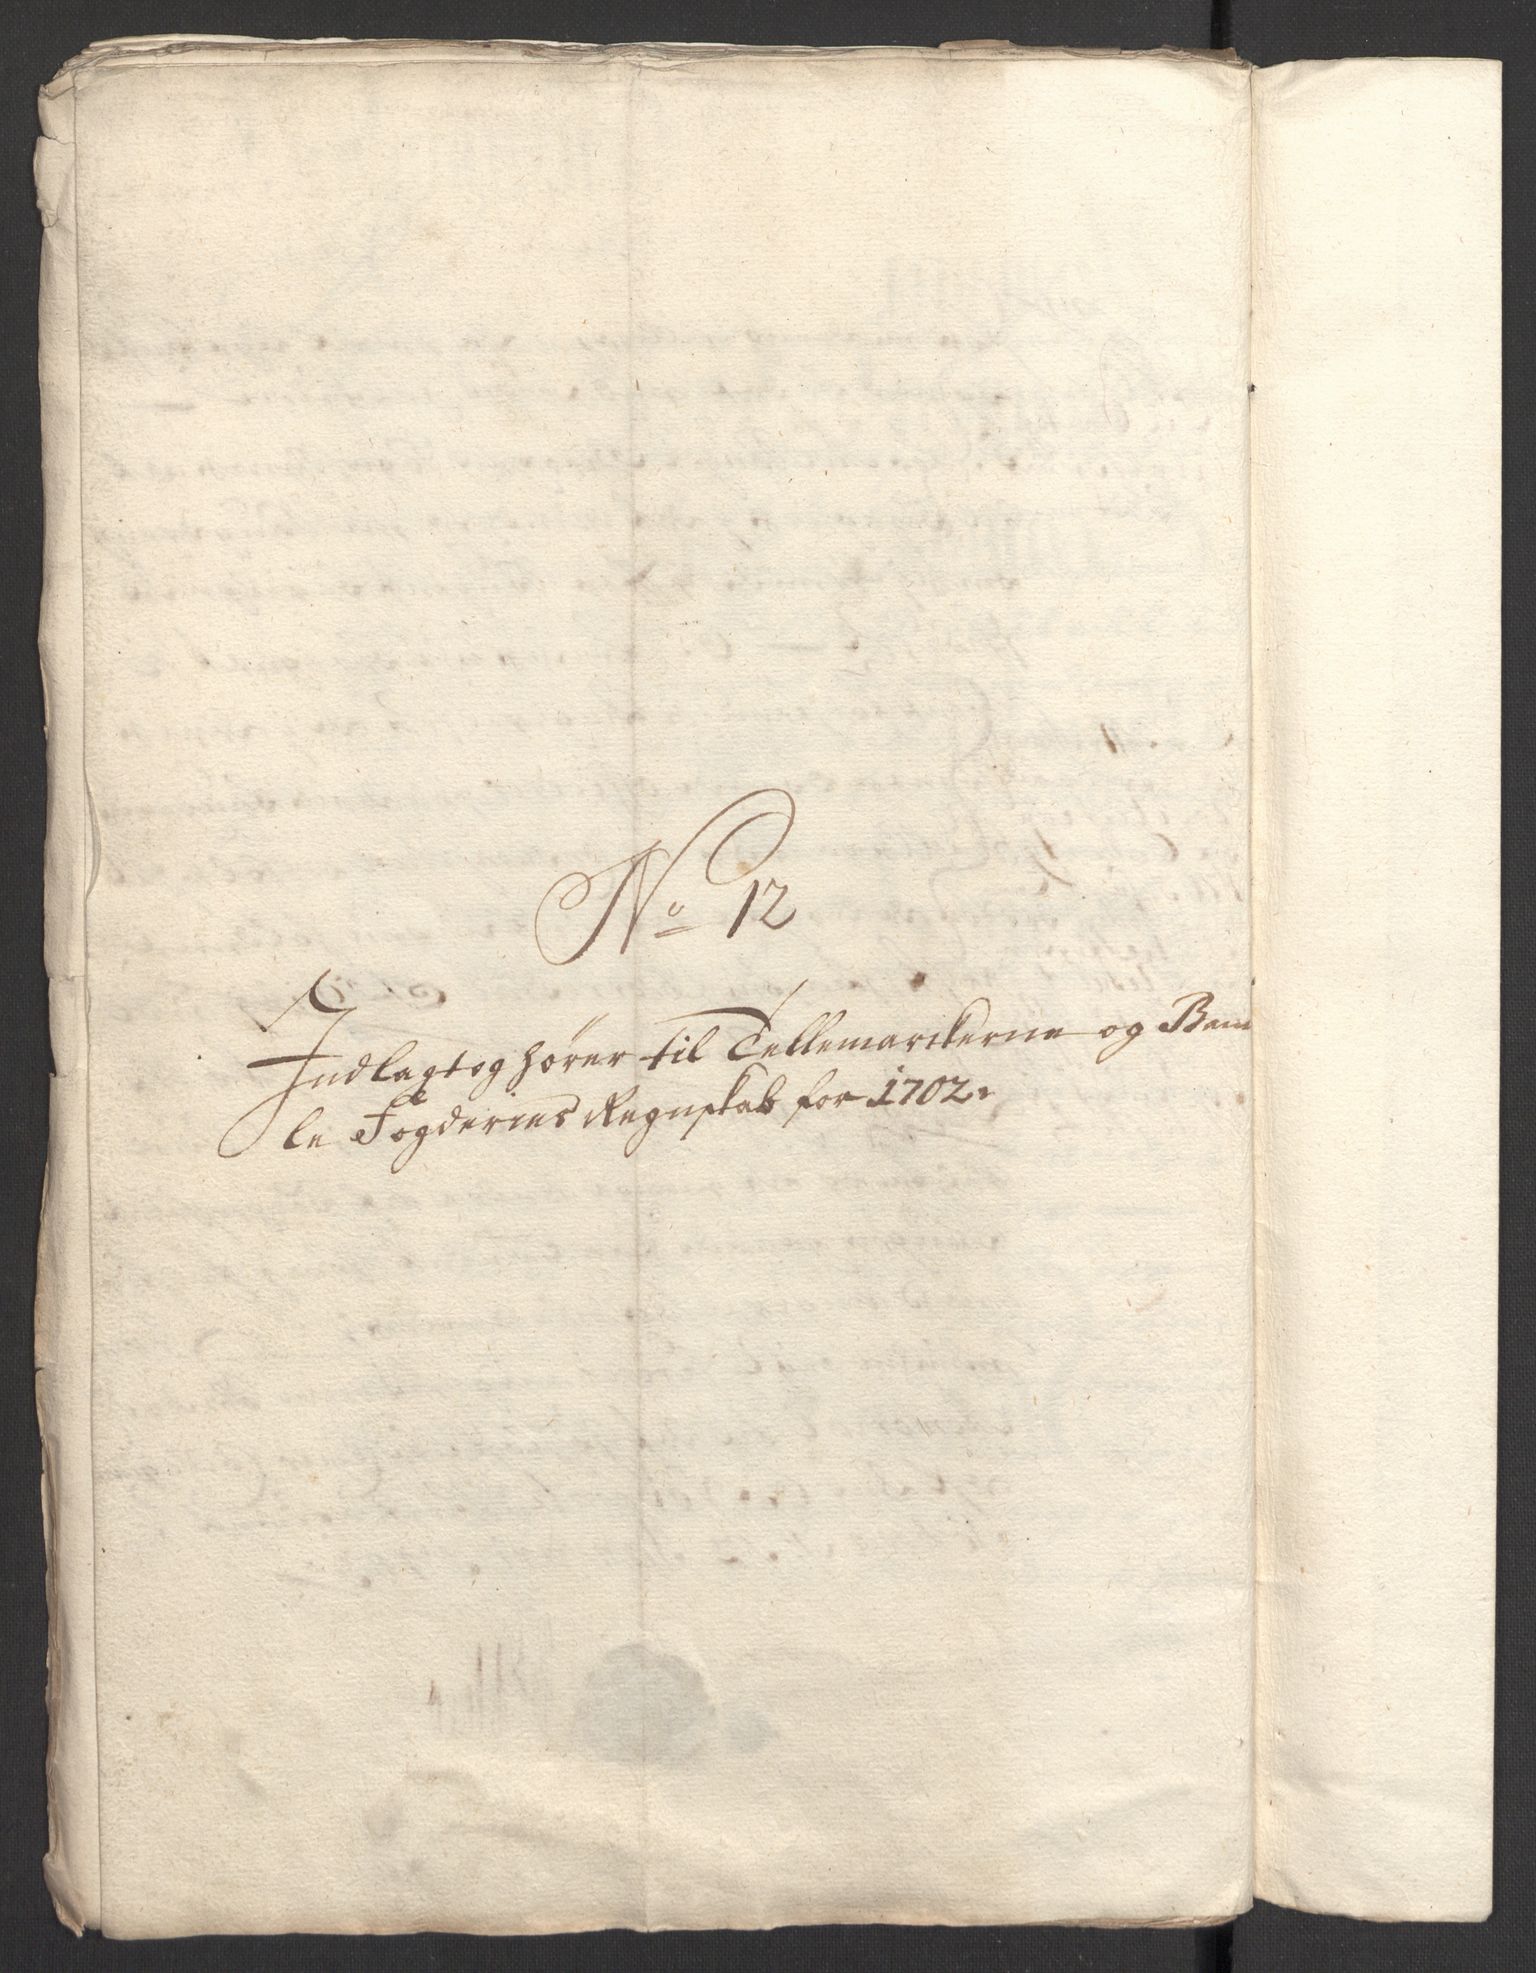 No 12
Indlagt og hører til Tellemarckerne og Bam
le Fogderies Regnskab for 1702.